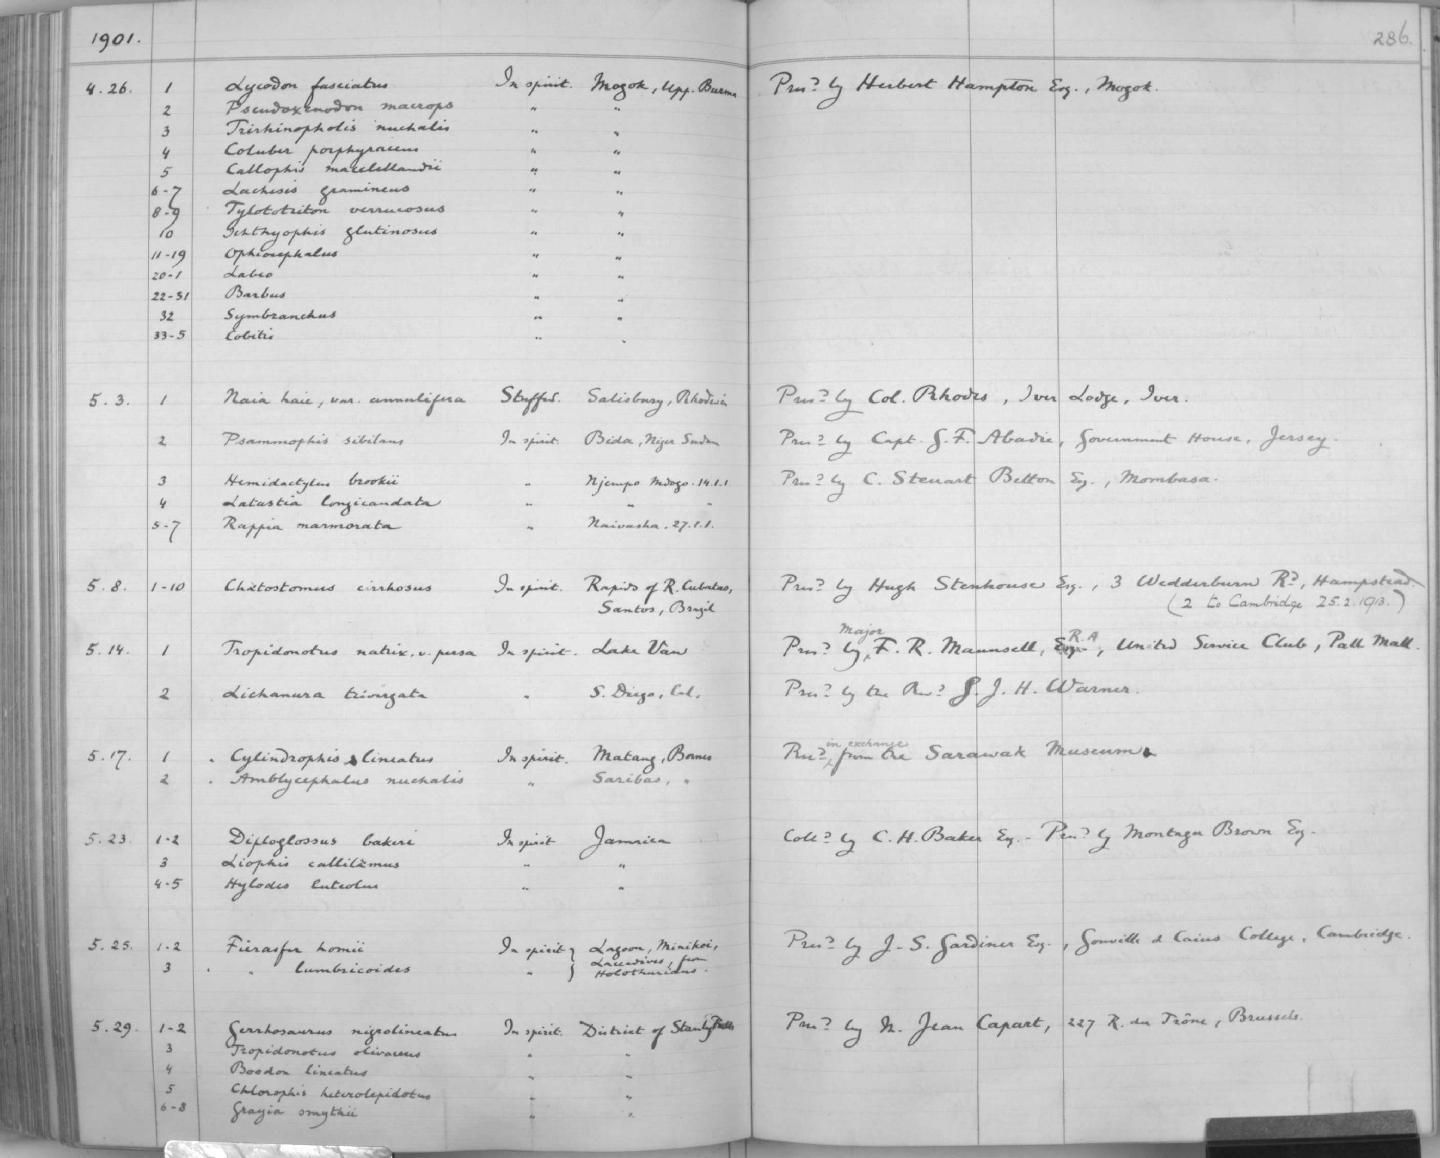 1901. 286.
4.26. 1 Lycodon fasciatus In spirit. Mogok, Upp. Burma Pres.d by Herbert Hampton Esq., Mogok.
2 Pseudoxenodon macrops " "
3 Trirhinopholis nuchalis " "
4 Coluber porphyraceus " "
5 Callophis macclellandii " "
6-7 Lachesis gramineus " "
8-9 Tylototriton verrucosus " "
10 Ichthyophis glutinosus " "
11-19 Ophiocephalus " "
20-1 Labeo " "
22-31 Barbus " "
32 Symbranchus " "
33-5 Cobitis " "
5.3. 1 Naia haie, var. annulifera Stuffed. Salisbury, Rhodesia Pres.d by Col. Rhodes, Iver Lodge, Iver.
2 Psammophis sibilans In spirit. Bida, Niger Sudan Pres.d by Capt. G. F. Abadie, Government House, Jersey.
3 Hemidactylus brookii " Njempo Mdogo. 14.1.1 Pres.d by C. Steuart Betton Esq., Mombasa.
4 Latastia longicaudata " " "
5-7 Rappia marmorata " Naivasha. 27.1.1.
5.8. 1-10 Chætostomus cirrhosus In spirit. Rapids of R. Cubatas, Pres.d by Hugh Stenhouse Esq., 3 Wedderburn R.d, Hampstead.
Santos, Brazil (2 to Cambridge 25.2.1913.)
Major R.A
5.14. 1 Tropidonotus natrix, v. persa In spirit. Lake Van Pres.d by F. R. Maunsell, Esq., United Service Club, Pall Mall.
2 Lichanura trivirgata " S. Diego, Cal. Pres.d by the Rev.d G. J. H. Warner.
in exchange
5.17. 1 Cylindrophis lineatus In spirit. Matang, Borneo Rec.d from the Sarawak Museum
2 Amblycephalus nuchalis " Saribas, "
5.23. 1-2 Diploglossus bakeri In spirit Jamaica Coll.d by C. H. Baker Esq. - Pres.d by Montagu Brown Esq.
3 Liophis callilæmus " "
4-5 Hylodes luteolus " "
5.25. 1-2 Fierasfer homii In spirit } Lagoon, Minikoi, Pres.d by J. S. Gardiner Esq., Gonville & Caius College, Cambridge.
3 " lumbricoides " } Laccadives, from
Holothurians.
5.29. 1-2 Gerrhosaurus nigrolineatus In spirit. District of Stanley Falls Pres.d by M. Jean Capart, 227 R. du Trône, Brussels.
3 Tropidonotus olivaceus " "
4 Boodon lineatus " "
5 Chlorophis heterolepidotus " "
6-8 Grayia smythii " "